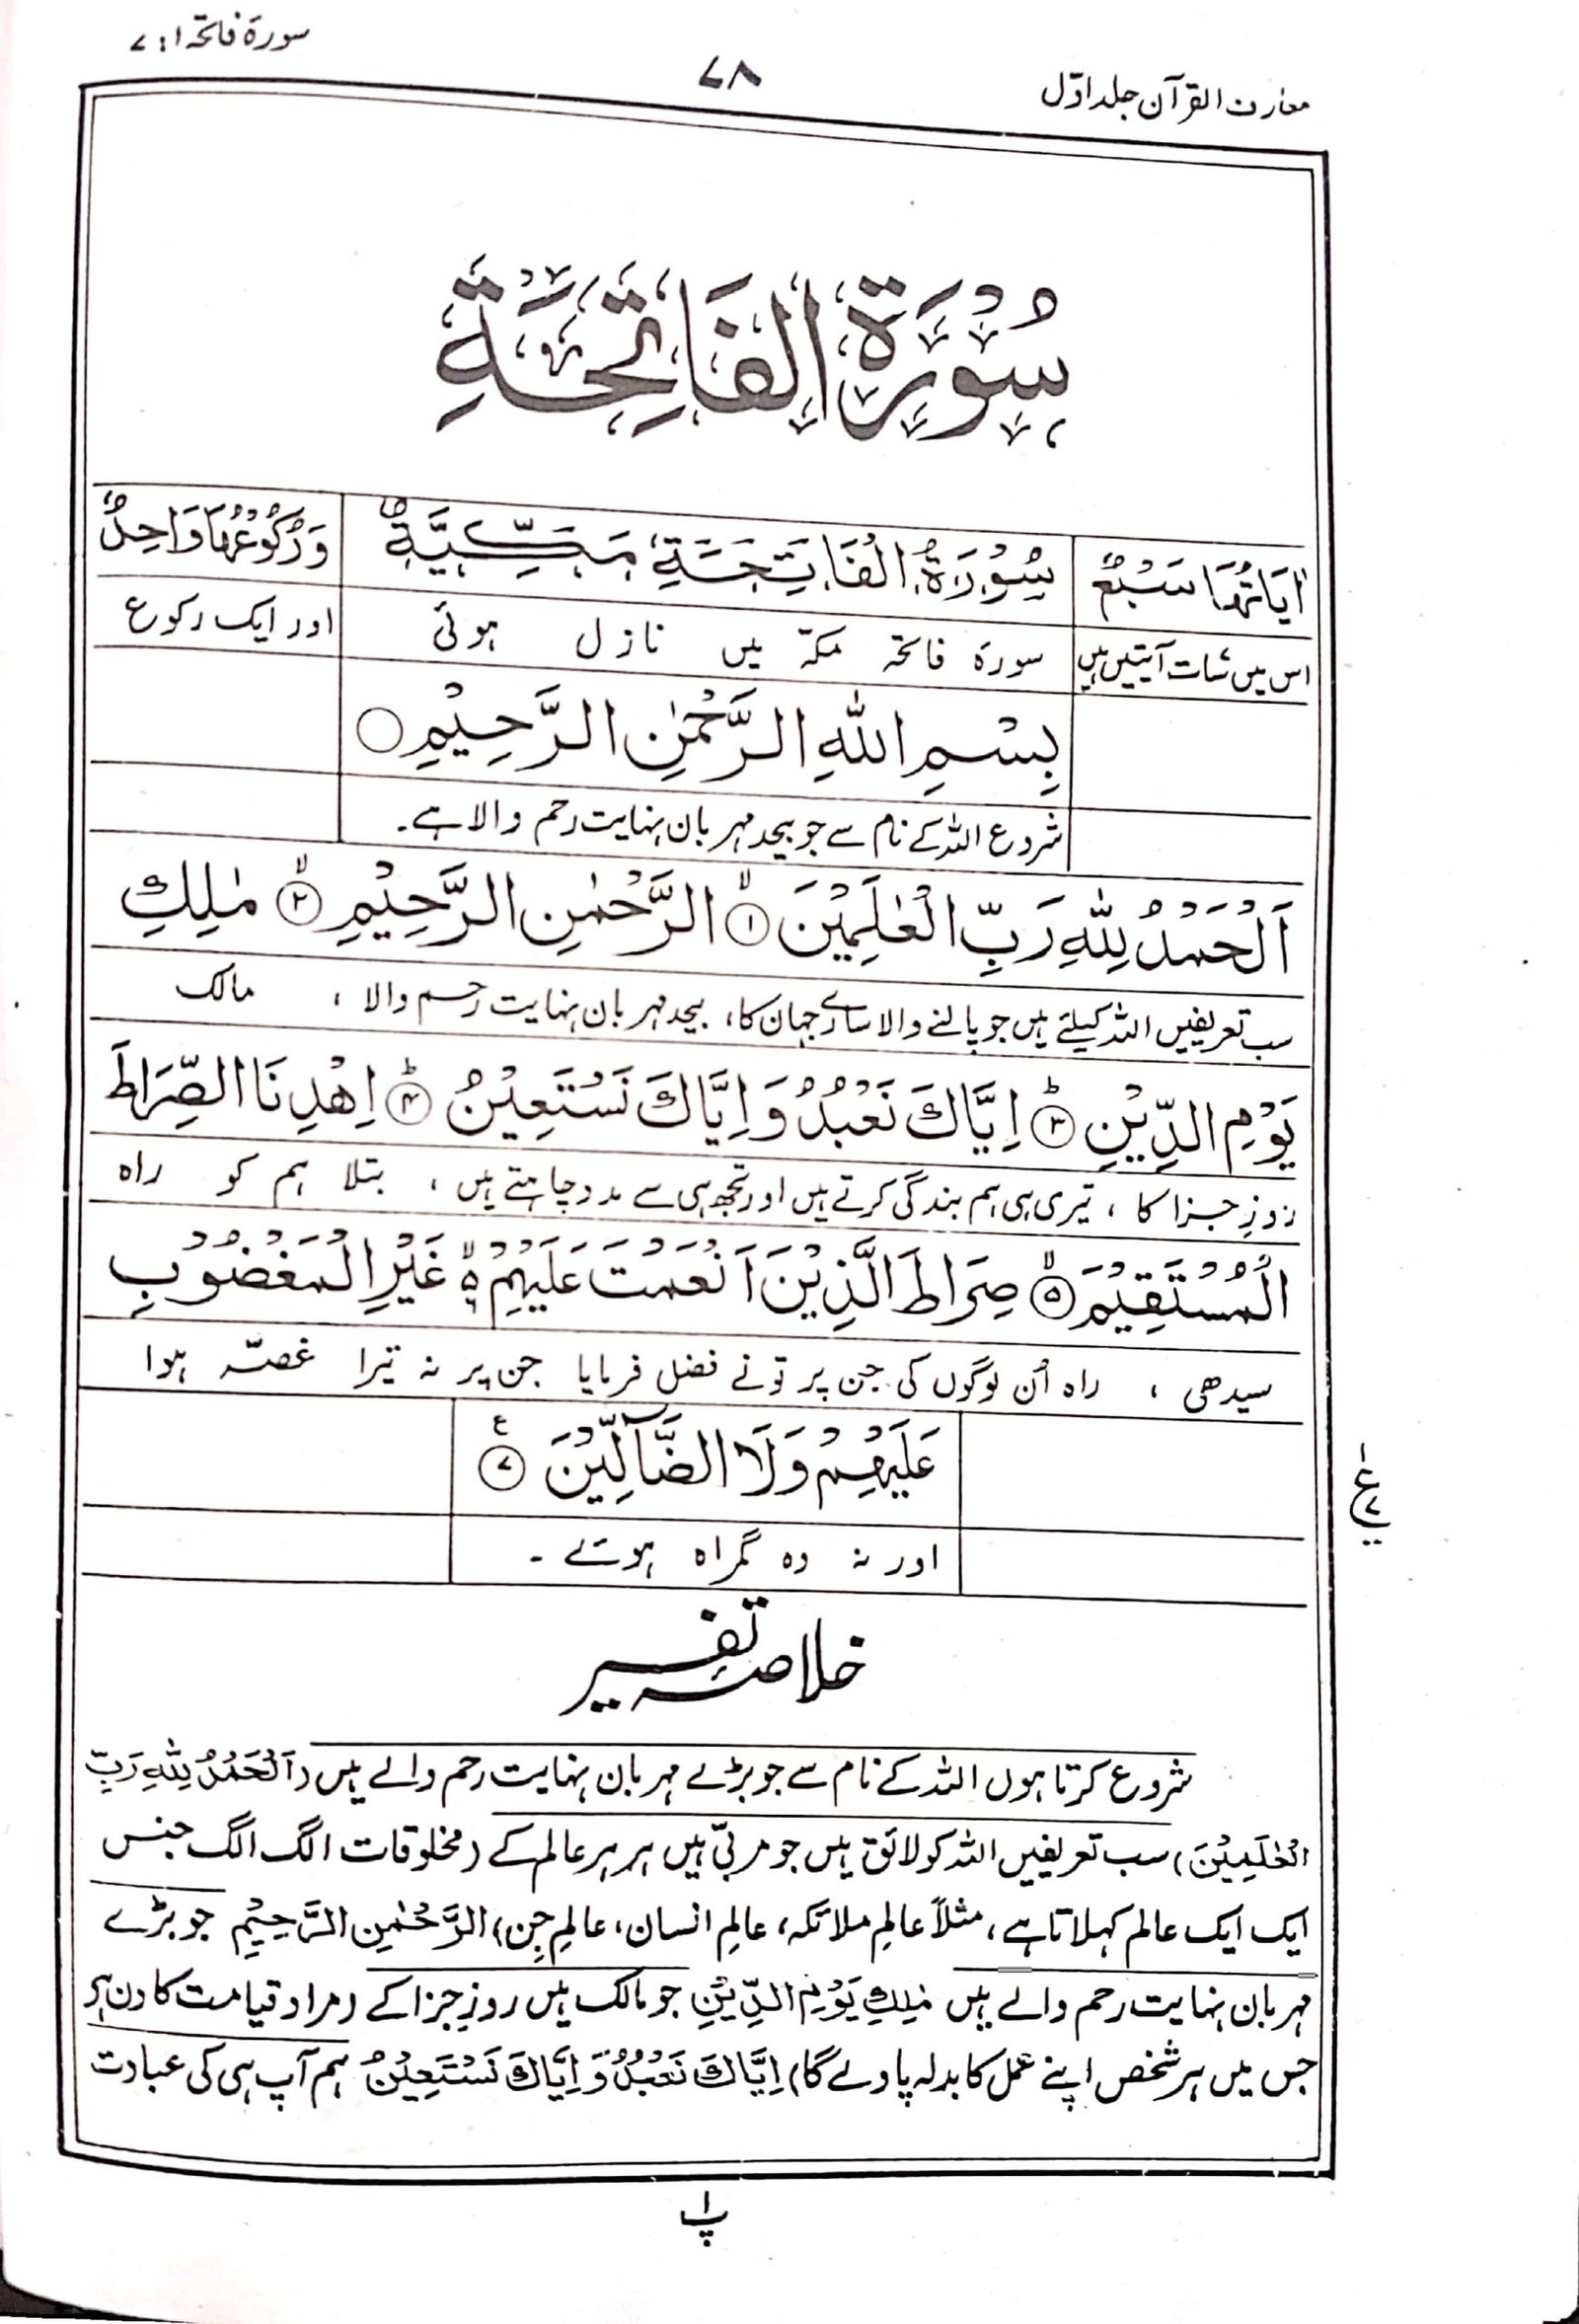 معارف القرآن جلد اوّل
۷۸
سورۃ فاتحہ ۱ : ۷
سُوْرَةُ الْفَاتِحَةِ
اٰيَاتُهَا سَبْعٌ سُوْرَةُ الْفَاتِحَةِ مَكِّيَّةٌ وَّرُكُوْعُهَا وَاحِدٌ
اس میں سات آیتیں ہیں سورۃ فاتحہ مکّہ میں نازل ہوئی اور ایک رکوع
بِسْمِ اللهِ الرَّحْمٰنِ الرَّحِيْمِ ○
شروع اللہ کے نام سے جو بیحد مہربان نہایت رحم والا ہے۔
اَلْحَمْدُ لِلّٰهِ رَبِّ الْعٰلَمِيْنَ ۙ﴿۱﴾ الرَّحْمٰنِ الرَّحِيْمِ ۙ﴿۲﴾ مٰلِكِ
سب تعریفیں اللہ کیلئے ہیں جو پالنے والا سارے جہان کا، بیحد مہربان نہایت رحم والا ، مالک
يَوْمِ الدِّيْنِ ؕ﴿۳﴾ اِيَّاكَ نَعْبُدُ وَ اِيَّاكَ نَسْتَعِيْنُ ؕ﴿۴﴾ اِهْدِنَا الصِّرَاطَ
روزِ جزا کا ، تیری ہی ہم بندگی کرتے ہیں اور تجھ ہی سے مدد چاہتے ہیں ، بتلا ہم کو راہ
الْمُسْتَقِيْمَ ۙ﴿۵﴾ صِرَاطَ الَّذِيْنَ اَنْعَمْتَ عَلَيْهِمْ ۙ۬ۥ غَيْرِ الْمَغْضُوْبِ
سیدھی ، راہ اُن لوگوں کی جن پر تو نے فضل فرمایا جن پر نہ تیرا غصّہ ہوا
عَلَيْهِمْ وَلَا الضَّآلِّيْنَ ﴿۷﴾ ع
اور نہ وہ گمراہ ہوئے ۔
خلاصۂ تفسیر
شروع کرتا ہوں اللہ کے نام سے جو بڑے مہربان نہایت رحم والے ہیں (اَلْحَمْدُ لِلّٰهِ رَبِّ
الْعٰلَمِيْنَ) سب تعریفیں اللہ کو لائق ہیں جو مربّی ہیں ہر ہر عالم کے (مخلوقات الگ الگ جنس
ایک ایک عالم کہلاتا ہے، مثلاً عالمِ ملائکہ، عالمِ انسان، عالمِ جِن) الرَّحْمٰنِ الرَّحِيْمِ جو بڑے
مہربان نہایت رحم والے ہیں مٰلِكِ يَوْمِ الدِّيْنِ جو مالک ہیں روزِ جزا کے (مراد قیامت کا دن ہر
جس میں ہر شخص اپنے عمل کا بدلہ پاوے گا) اِيَّاكَ نَعْبُدُ وَ اِيَّاكَ نَسْتَعِيْنُ ہم آپ ہی کی عبادت